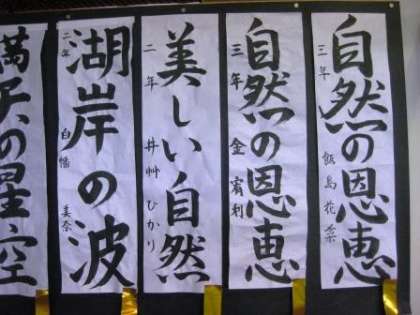 自然の恩恵
三年 飯島花菜
自然の恩恵
三年 金宥利
美しい自然
二年 井艸ひかり
湖岸の波
二年 白幡美奈
満天の星空